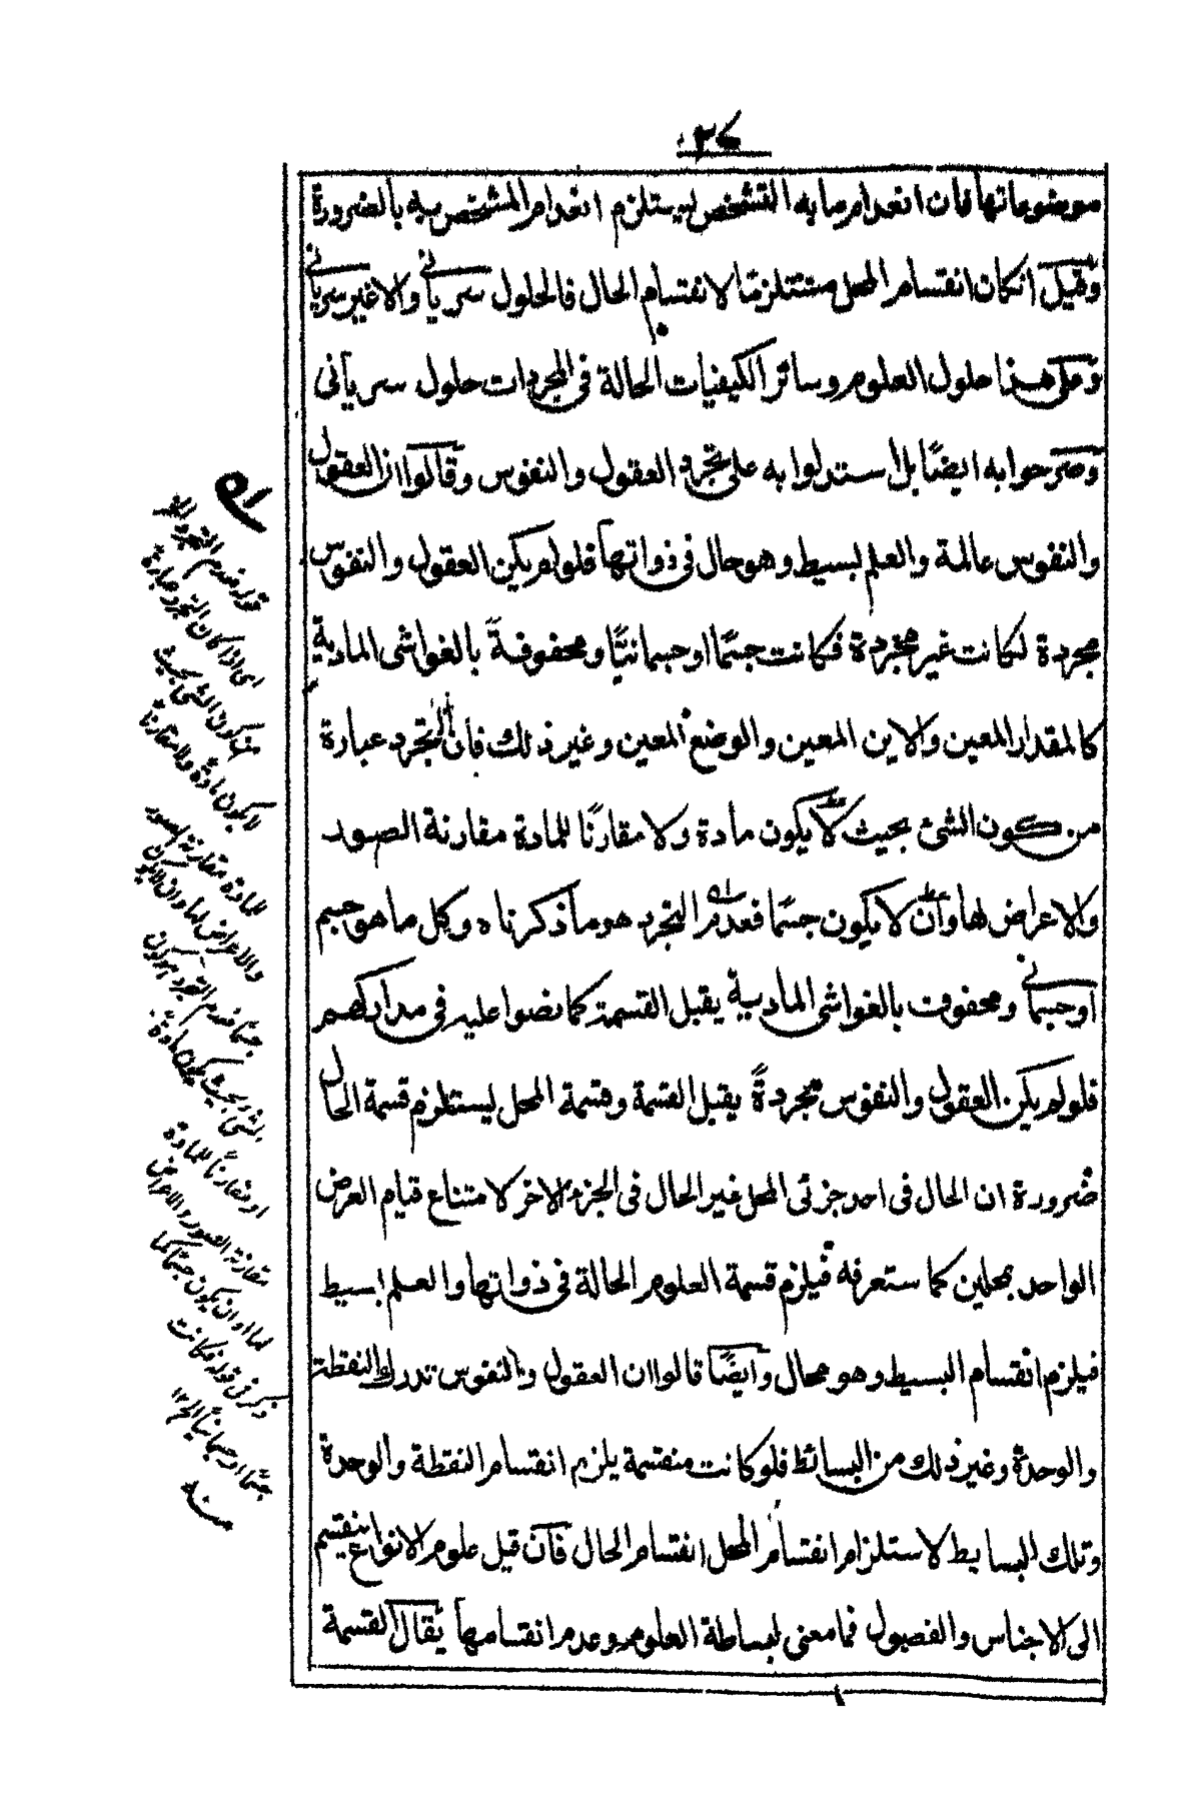 ٣٧
موضوعاتها فان انعدام ما به التشخص ليستلزم انعدام المشخص به بالضرورة
وقيل انكان انقسام المحل مستلزمًا لانقسام الحال فالحلول سرياني والا غير سرياني
وعلى هذا حلول العلوم وسائر الكيفيات الحالة فى المجردات حلول سريانى
وصرحوا به ايضًا بل استدلوا به على تجرد العقول والنفوس وقالوا ان العقول
والنفوس عالمة والعلم بسيط وهو حال فى ذواتها فلو لم يكن العقول والنفوس
مجردة لكانت غير مجردة فكانت جسمًا او جسمانيًا ومحفوفة بالغواشى المادية
كالمقدار المعين والاين المعين والوضع المعين وغير ذلك فان التجرد عبارة
من كون الشئ بحيث لا يكون مادة ولا مقارنًا للمادة مقارنة الصور
والاعراض لها وان لا يكون جسمًا فعدم التجرد هو ما ذكرناه وكل ما هو جسم
او جسماني ومحفوف بالغواشى المادية يقبل القسمة كما نصوا عليه فى مداركهم
فلو لم يكن العقول والنفوس مجردةً يقبل القسمة وقسمة المحل ليستلزم قسمة الحال
ضرورة ان الحال فى احد جزئى المحل غير الحال فى الجزء الاخر لامتناع قيام العرض
الواحد بمحلين كما ستعرفه فيلزم قسمة العلوم الحالة فى ذواتها والعلم بسيط
فيلزم انقسام البسيط وهو محال وايضًا قالوا ان العقول والنفوس تدرك النقطة
والوحدة وغير ذلك من البسائط فلو كانت منقسمة يلزم انقسام النقطة والوحدة
وتلك البسايط لاستلزام انقسام المحل انقسام الحال فان قيل علوم الانواع ينقسم
الى الاجناس والفصول فما معنى لبساطة العلوم وعدم انقسامها يقال القسمة
قوله فعدم التجرد الخ
اى اذا كان التجرد عبارة
من كون الشئ بحيث
لا يكون مادة ولا مقارنًا
للمادة مقارنة الصور
والاعراض لها وان لا يكون
جسمًا فعدم التجرد هو كون
الشئ بحيث يكون مادة
او مقارنًا للمادة
مقارنة الصور والاعراض
لها او ان يكون جسمًا كما
ذكر فى قوله فكانت
جسمًا او جسمانيًا الخ ١٢
منه